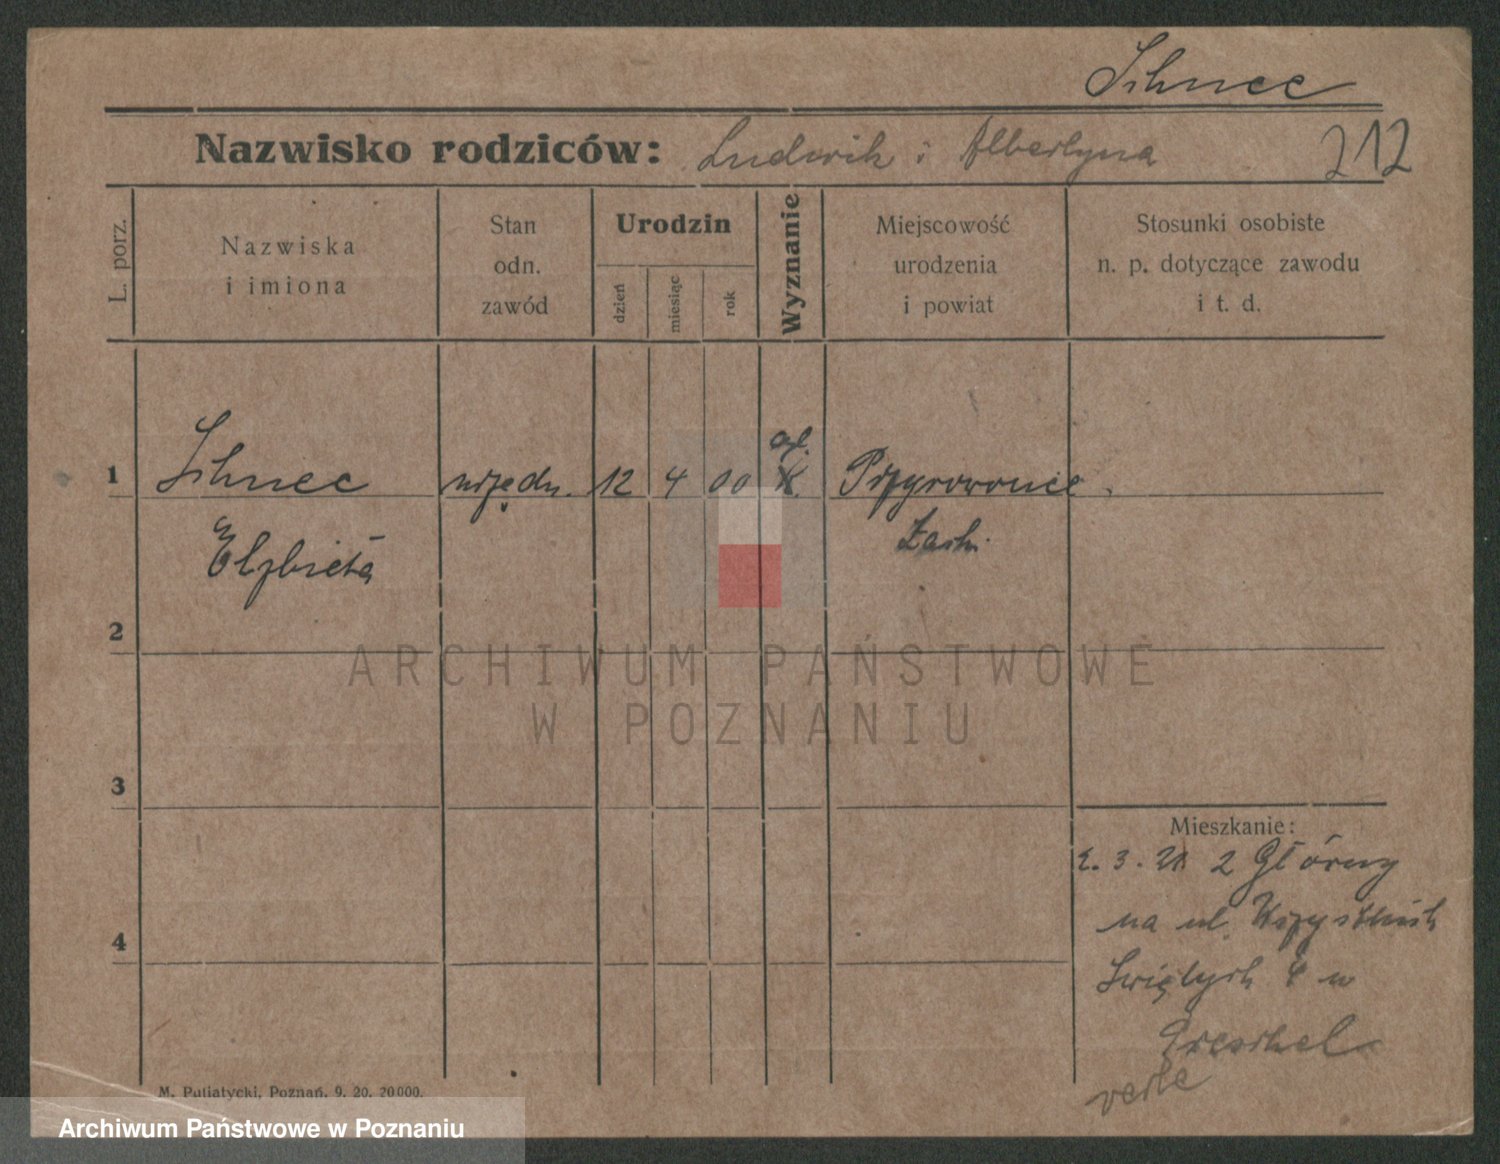 Schnee
Nazwisko rodziców: Ludwik i Albertyna 212
L. porz.
Nazwiska
i imiona
Stan
odn.
zawód
Urodzin
dzień
miesiąc
rok
Wyznanie
Miejscowość
urodzenia
i powiat
Stosunki osobiste
n. p. dotyczące zawodu
i t. d.
1 Schnee urzędn. 12 4 00
Elzbieta
2
3
4
Mieszkanie:
2. 3. 21. z Główny
na ul. Wszystkich
Świętych 4 w
M. Putiatycki, Poznań. 9. 20. 20000.
ARCHIWUM PAŃSTWOWE
W POZNANIU
Archiwum Państwowe w Poznaniu